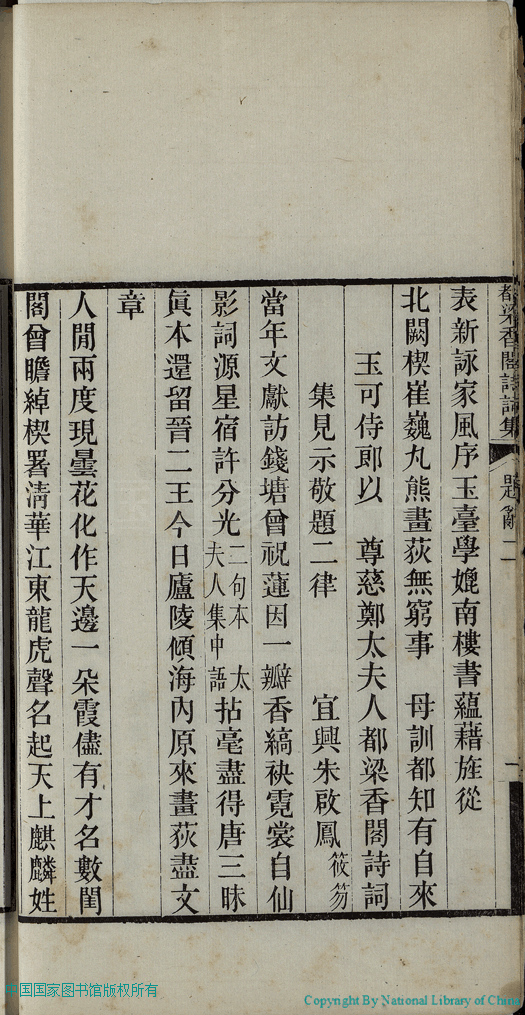 都梁香閣詩詞集 題籤 二
表新詠家風序玉臺學嬔南樓書蘊藉旌從
北闕楔崔巍丸熊畫荻無窮事 母訓都知有自來
玉可侍郎以 尊慈鄭太夫人都梁香閣詩詞
集見示敬題二律 宜興朱啟鳳筱笏
當年文獻訪錢塘曾祝蓮因一瓣香縞袂霓裳自仙
影詞源星宿許分光二句本 太夫人集中語拈毫盡得唐三昧
眞本還留晉二王今日廬陵傾海內原來畫荻盡文
章
人閒兩度現曇花化作天邊一朵霞儘有才名數閨
閣曾瞻綽楔署淸華江東龍虎聲名起天上麒麟姓
中国国家图书馆版权所有
Copyright By National Library of China